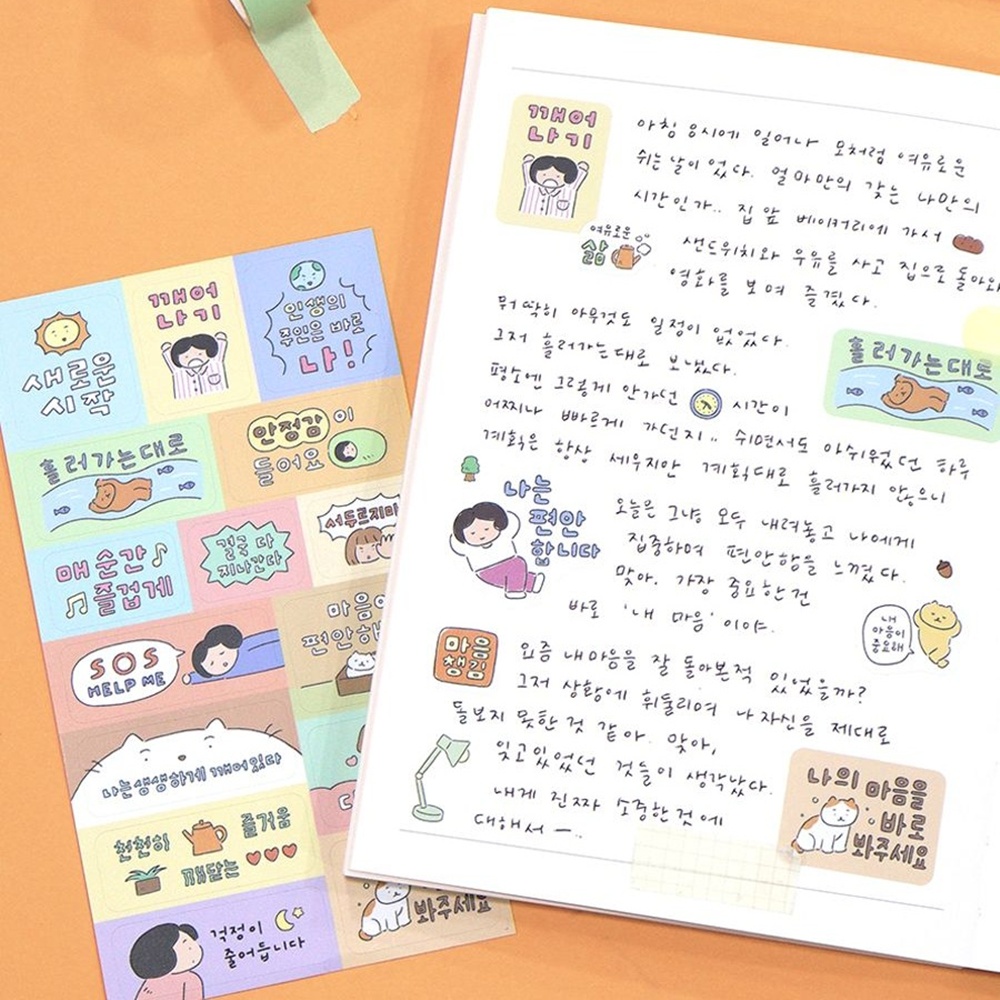 새로운
시작
깨어
나기
인생의
주인은 바로
나!
흘러가는대로
안정감이
들어요
매 순간
즐겁게
결국 다
지나간다
서두르지마
SOS
HELP ME
마음이
편안해
나는 생생하게 깨어있다
천천히
즐거움
깨닫는
걱정이
줄어듭니다
봐주세요
깨어
나기
아침 8시에 일어나 모처럼 여유로운
쉬는 날이었다. 얼마만의 갖는 나만의
시간인가.. 집 앞 베이커리에 가서
여유로운
삶
샌드위치와 우유를 사고 집으로 돌아와
영화를 보며 즐겼다.
뭐 딱히 아무것도 일정이 없었다.
그저 흘러가는대로 보냈다.
흘러가는대로
평소엔 그렇게 안가던 시간이
어찌나 빠르게 가던지.. 쉬면서도 아쉬웠던 하루
계획은 항상 세우지만 계획대로 흘러가지 않으니
나는
편안
합니다
오늘은 그냥 모두 내려놓고 나에게
집중하며 편안함을 느꼈다.
맞아. 가장 중요한건
바로 '내 마음' 이야.
내
마음이
중요해
마음
챙김
요즘 내마음을 잘 돌아본적 있었을까?
그저 상황에 휘둘리며 나 자신을 제대로
돌보지 못한 것 같아. 맞아,
잊고있었던 것들이 생각났다.
내게 진짜 소중한 것에
대해서 ㅡ..
나의 마음을
바로
봐주세요